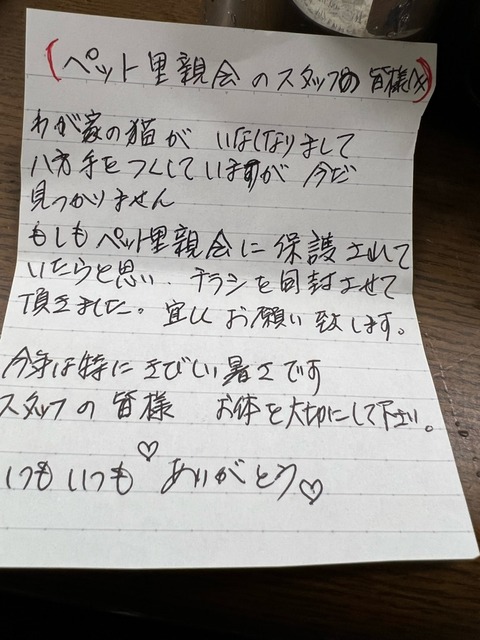 (ペット里親会のスタッフの皆様へ)
わが家の猫が いなくなりまして
八方手をつくしていますが 今だ
見つかりません
もしもペット里親会に保護されて
いたらと思い、チラシを同封させて
頂きました。宜しくお願い致します。
今年は特にきびしい暑さです
スタッフの皆様 お体を大切にして下さい。
いつもいつも♡ありがとう♡